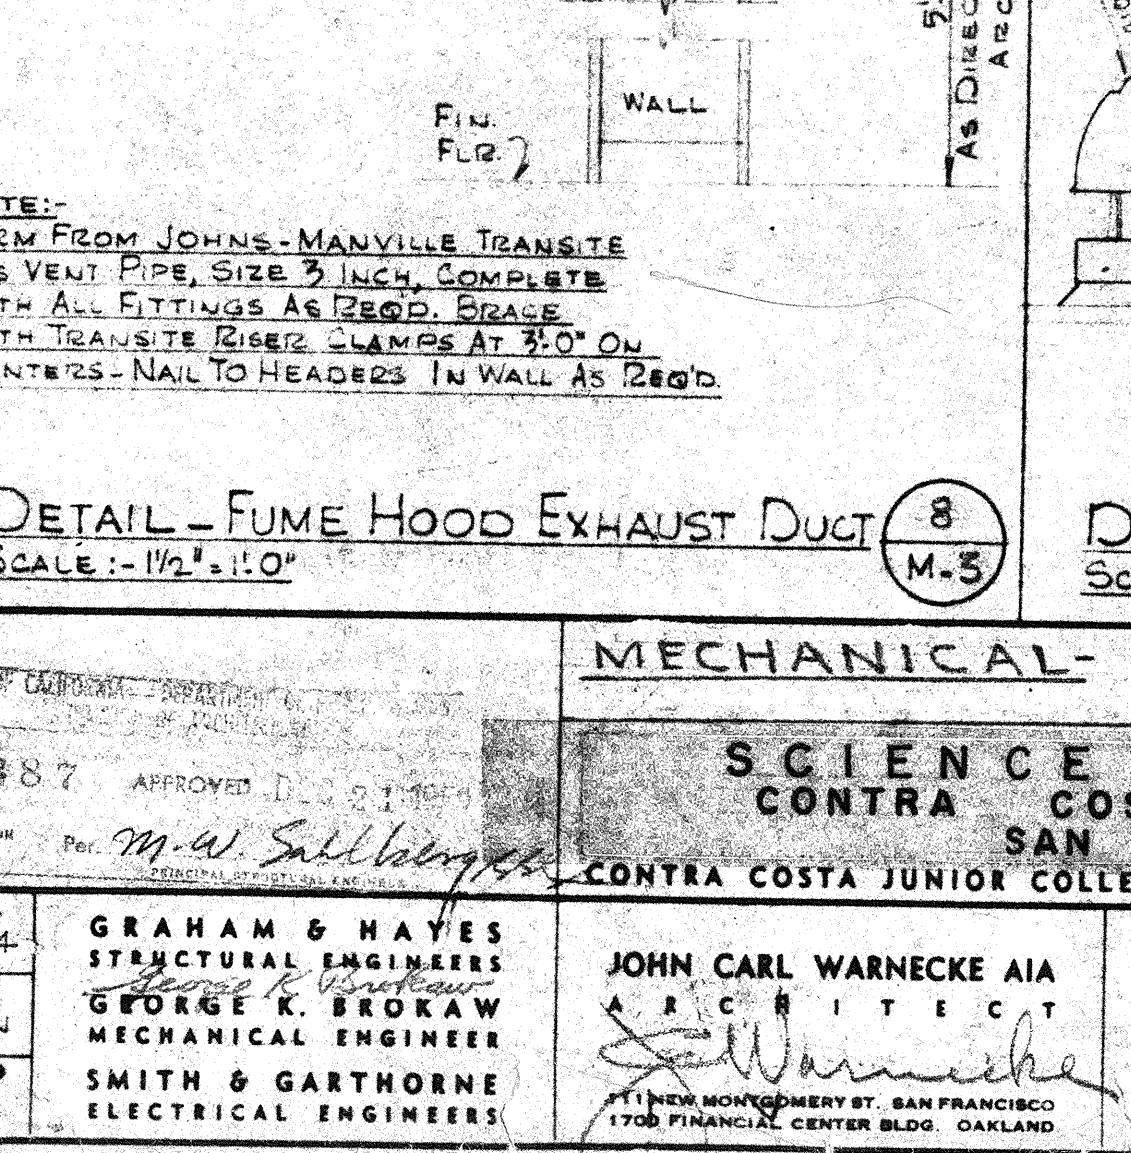 5'
AS DIREC
ARC
WALL
FIN.
FLR.
TE:-
RM FROM JOHNS-MANVILLE TRANSITE
S VENT PIPE, SIZE 3 INCH, COMPLETE
TH ALL FITTINGS AS REQ'D. BRACE
TH TRANSITE RISER CLAMPS AT 3'-0" ON
NTERS-NAIL TO HEADERS IN WALL AS REQ'D.
DETAIL-FUME HOOD EXHAUST DUCT
8
M-3
SCALE:-1 1/2"=1'-0"
D
SC
MECHANICAL-
CALIFORNIA DEPARTMENT OF
OF ARCHITECTURE
87 APPROVED DEC 21
Per. M. W. Sahlberg
PRINCIPAL STRUCTURAL ENGINEER
SCIENCE
CONTRA COS
SAN
CONTRA COSTA JUNIOR COLLE
GRAHAM & HAYES
STRUCTURAL ENGINEERS
George K Brokaw
GEORGE K. BROKAW
MECHANICAL ENGINEER
SMITH & GARTHORNE
ELECTRICAL ENGINEERS
JOHN CARL WARNECKE AIA
ARCHITECT
Warnecke
111 NEW MONTGOMERY ST. SAN FRANCISCO
1700 FINANCIAL CENTER BLDG. OAKLAND